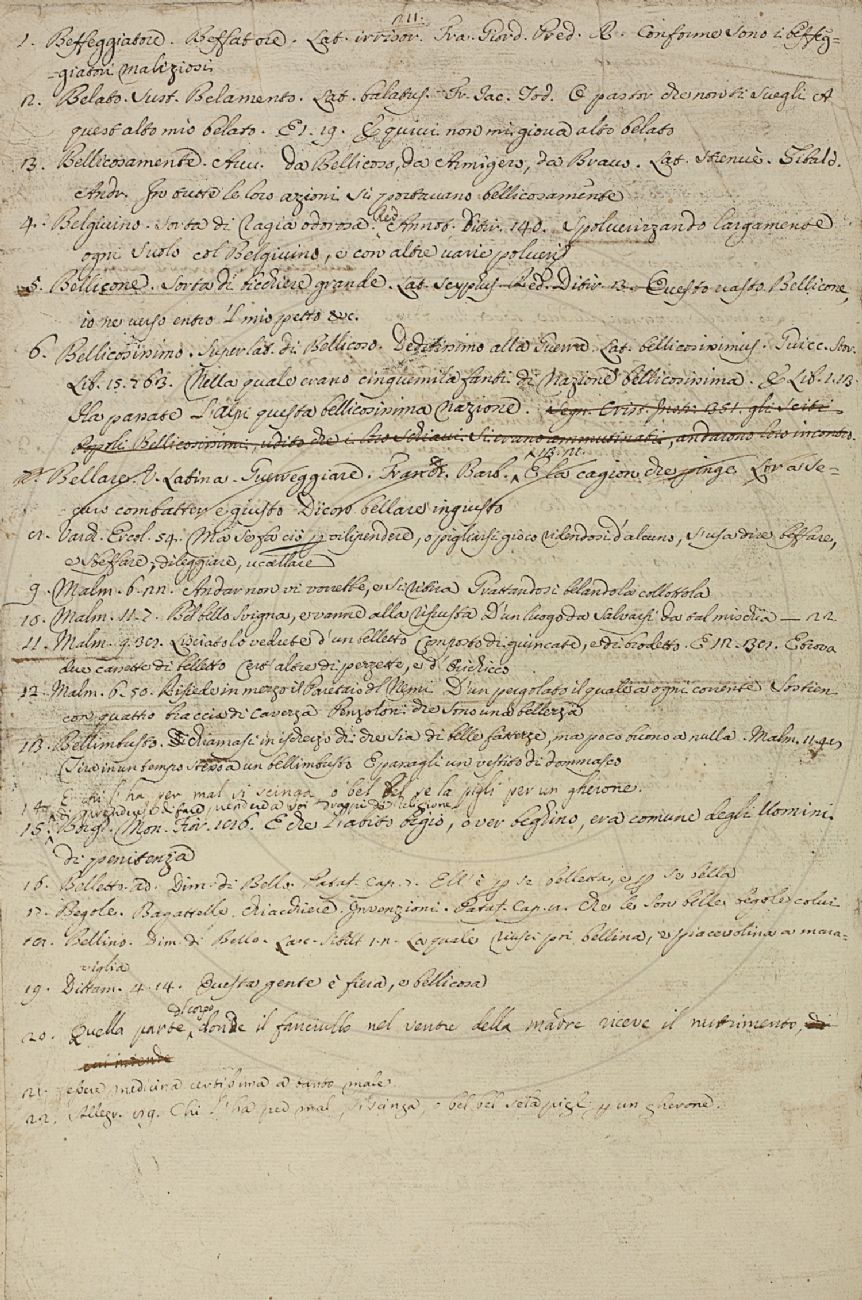 211.
1. Beffeggiatore. Beffatore. Lat. irrisor. Fra. Giord. Pred. R. Conforme sono i beffeg=
=giatori maliziosi
2. Belato. Sust. Belamento. Lat. balatus. Fr. Jac. Tod. O pastor che non ti svegli A
quest alto mio belato. E 1. 19. E quivi non mi giova alto belato
3. Bellicosamente. Avv. da Bellicoso, da Armigero, da Bravo. Lat. strenuè. Sitald.
Andr. In tutte le loro azioni si portavano bellicosamente
4. Belgivino. Sorta di ragia odorosa. Red. Annot. Ditir. 140. Spolverizzando largamente
ogni suolo col Belgivino, e con altre varie polveri
5. Bellicone. Sorta di bicchiere grande. Lat. scyphus. Red. Ditir. 13. Questo vasto Bellicone,
io ne verso entro 'l mio petto &c.
6. Bellicosissimo. Superlat. di Bellicoso. Deditissimo alla Guerra. Lat. bellicosissimus. Guicc. Stor.
Lib. 15. 763. Nella quale erano cinquemila fanti di Nazione bellicosissima. E Lib. 1. 13.
Ha passate l'alpi questa bellicosissima Nazione. Segn. Crist. Instr. 351. gli Sciti
Popoli Bellicosissimi, udito che i loro schiavi si erano ammutinati, andarono loro incontro.
Bellare. V. Latina. Guerreggiare. Franc. Barb. E la cagion che pinge Lor a se=
guir combatter è giusto Dicoro bellare ingiusto
8. Varch. Ercol. 54. Ma se fa ciò p vilipendere, o pigliarsi gioco ridendosi d'alcuno, s'usa dire beffare,
e sbeffare, dileggiare, uccellare
9. Malm. 6. 22. Andar non vi vorrebbe, e si ritira Grattandosi belando la collottola
10. Malm. 11. 7. Bel bello svigna, e vanne alla rifiusta D'un luogo da salvarsi da tal mischia — 22
11. Malm. 9. 38. Lisciatolo vedute d'un belletto Composto di quincate, e di brodetto. E 12. 38. E trova
due cassette di belletto Cert' altre di pezzette, e d'Orichicco
12. Malm. 6. 50. Risiede in mezzo il Paretaio del Nemi D'un pergolato il quale a ogni corrente Sostien
con quattro braccia di cavezza Penzoloni che sono una bellezza
13. Bellimbusto. Dichiamasi in ischerzo di che sia di belle fattezze, ma poco buono a nulla. Malm. 11. 47
Tira in un tempo stesso a un bellimbusto E paragli un vestito di dommasco
14. E chi l'ha per mal si scinga o bel bel se la pigli per un gherone.
15. Borg. Mon. Fior. 186. E che l'abito bigio, o ver beghino, era comune degli Uomini
di penitenza
16. Belletto. ad. Dim. di Bello. Pataf. Cap. 7. Ell' è p se belletta, e p se bella
17. Begole. Bagattelle, chiacchiere, Invenzioni. Pataf. Cap. Che le son belle begole colui
18. Bellino. Dim. di Bello. La quale riuscì poi bellina, e piacevolina a mara=
viglia
19. Dittam. 4. 14. Questa gente è fiera, e bellicosa
20. Quella parte di corpo, donde il fanciullo nel ventre della madre riceve il nutrimento,
21. esser medicina certissima a tanto male.
22. Allegr. 29. Chi l'ha per mal, si scinga, o bel bel se la pigli p un gherone.